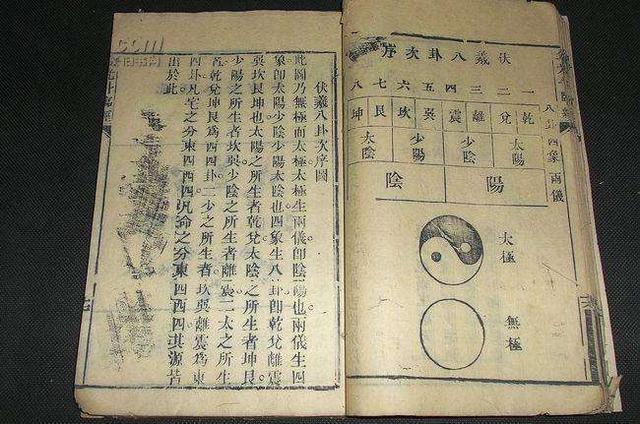 伏羲八卦次序
一二三四五六七八
乾兌離震巽坎艮坤
太陽 少陰 少陽 太陰
陽 陰
太極
無極
八卦 四象 兩儀
伏羲八卦次序圖
此圖乃無極而太極太極生兩儀卽陰陽也兩儀生四
象卽太陽少陰少陽太陰也四象生八卦卽乾兌離震
巽坎艮坤也太陽之所生者乾兌太陰之所生者坤艮
少陽之所生者坎巽少陰之所生者離震二太之所生
者乾兌坤艮為西四卦二少之所生者坎巽離震為東
四卦凡宅之分東四西四凡命之分東四西四其源皆
出於此
.com